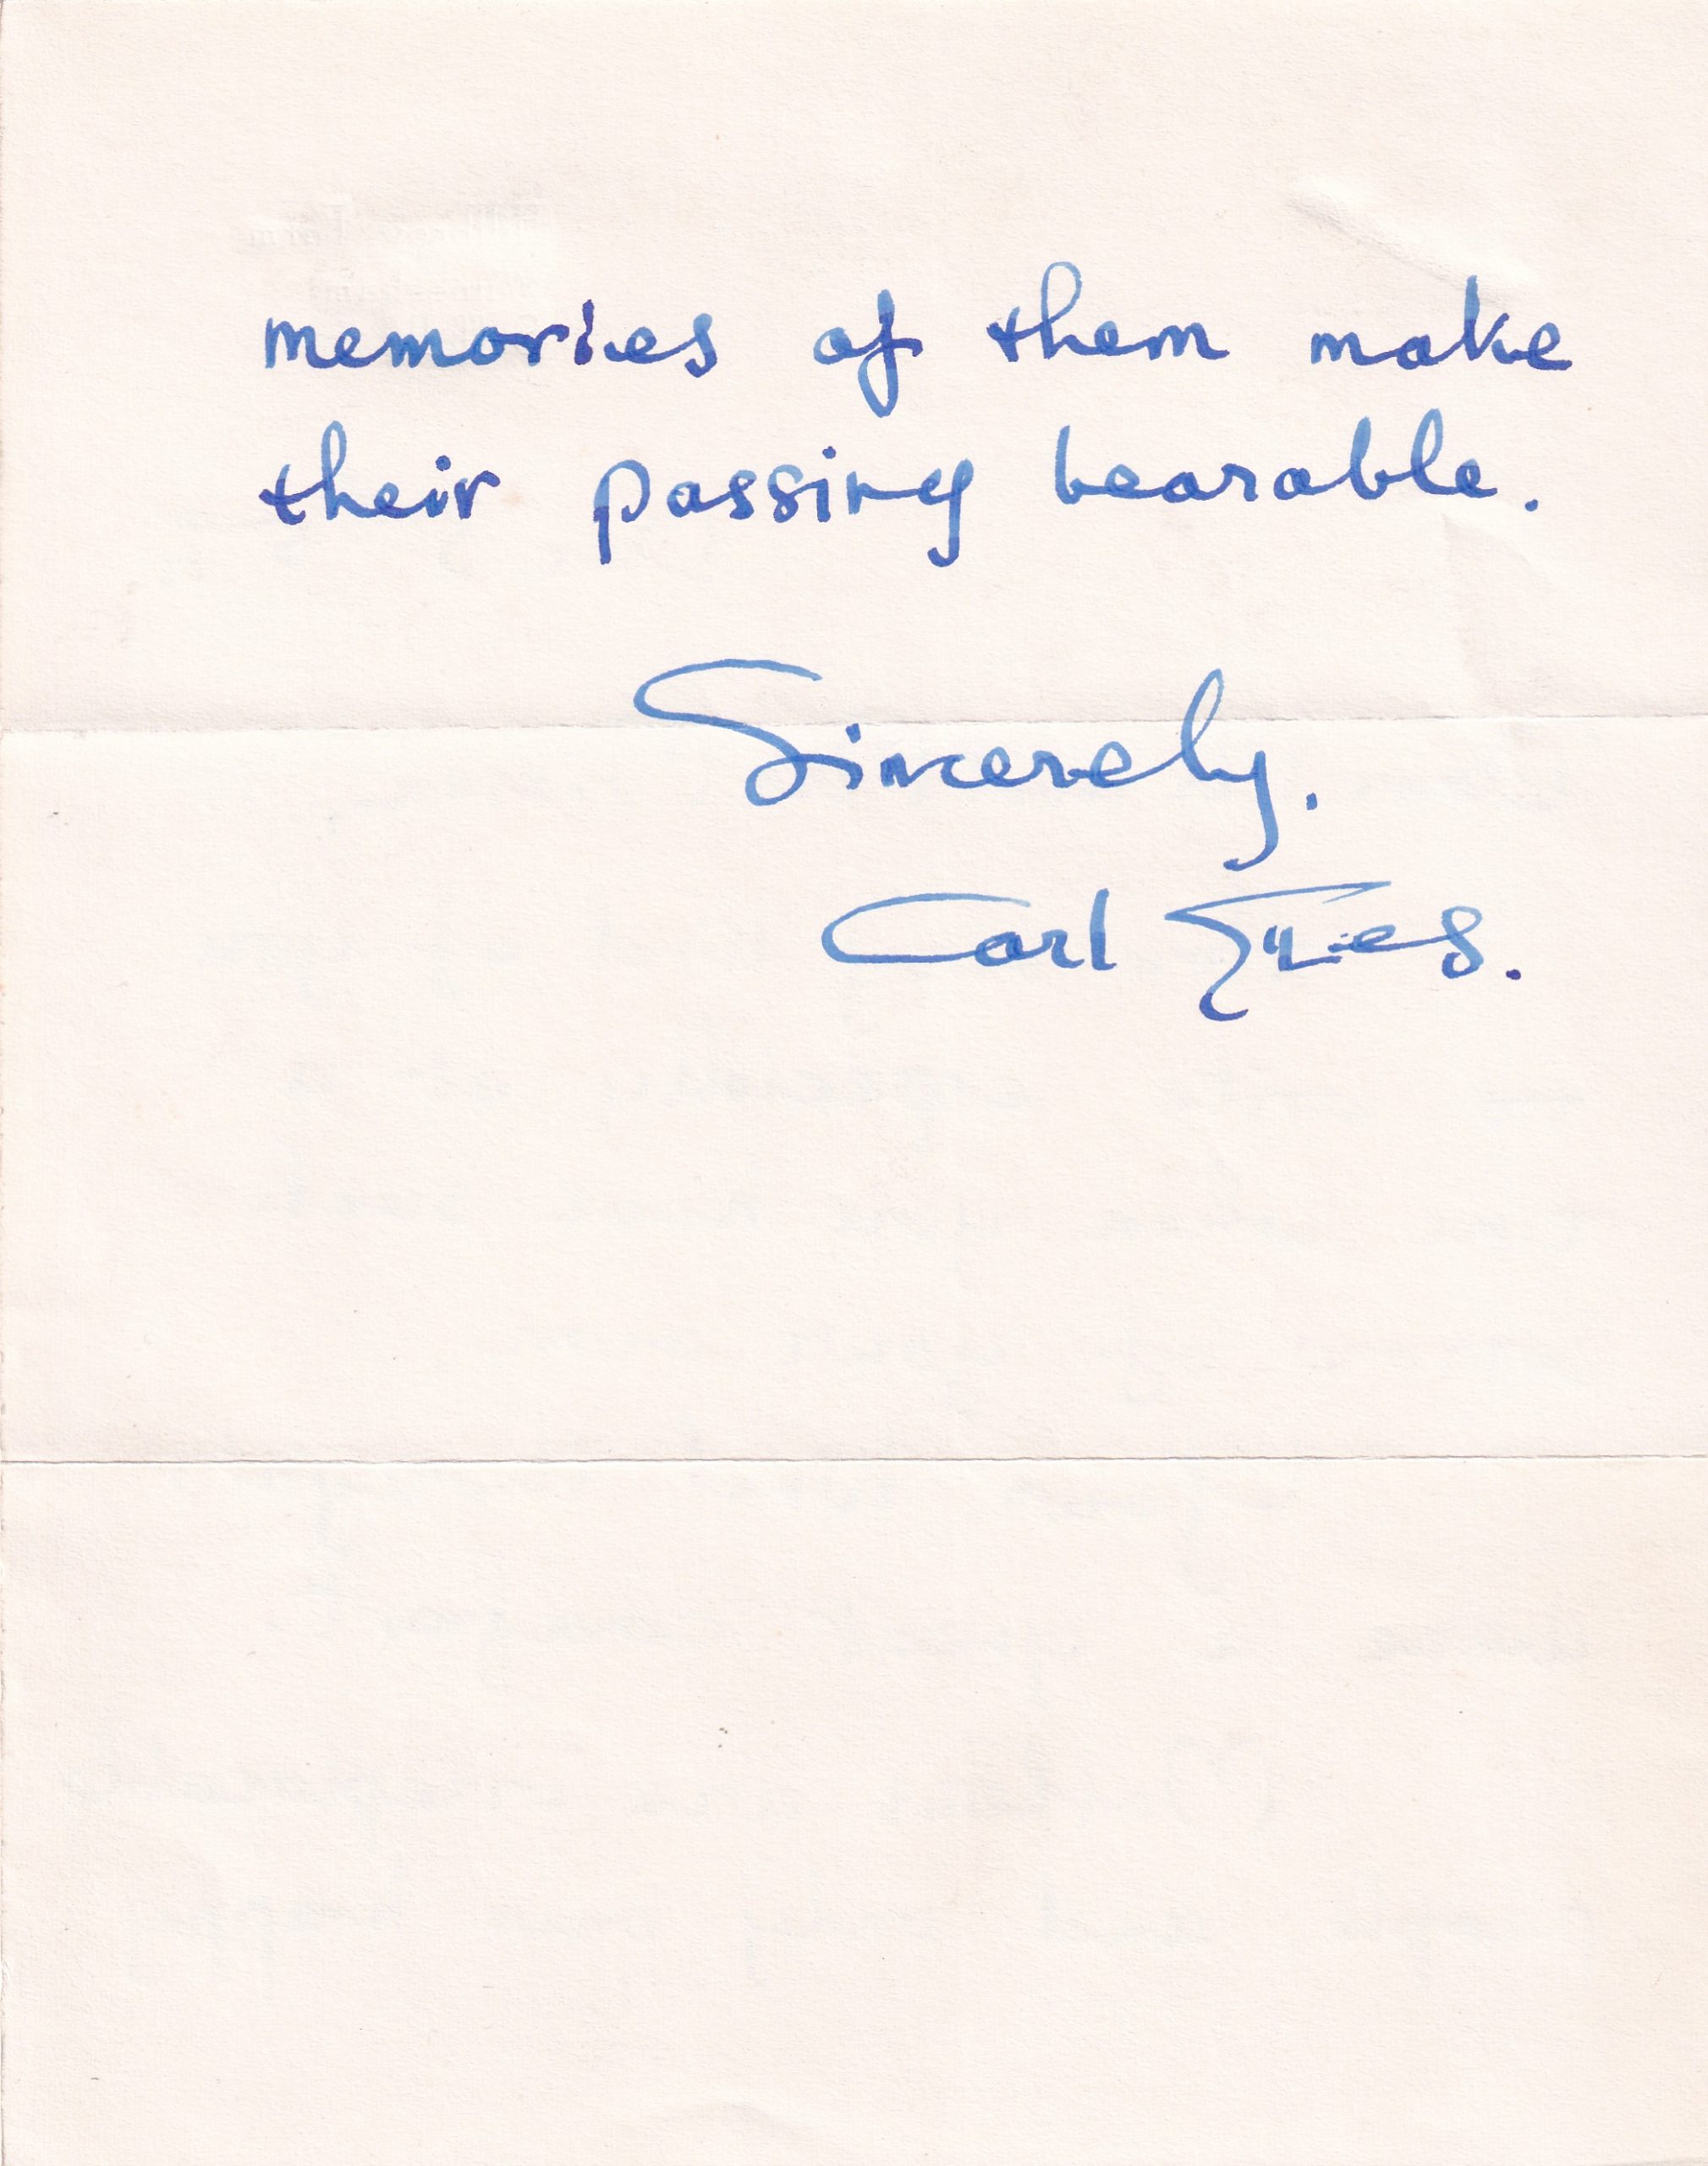 memories of them make
their passing bearable.
Sincerely.
Carl Giles.